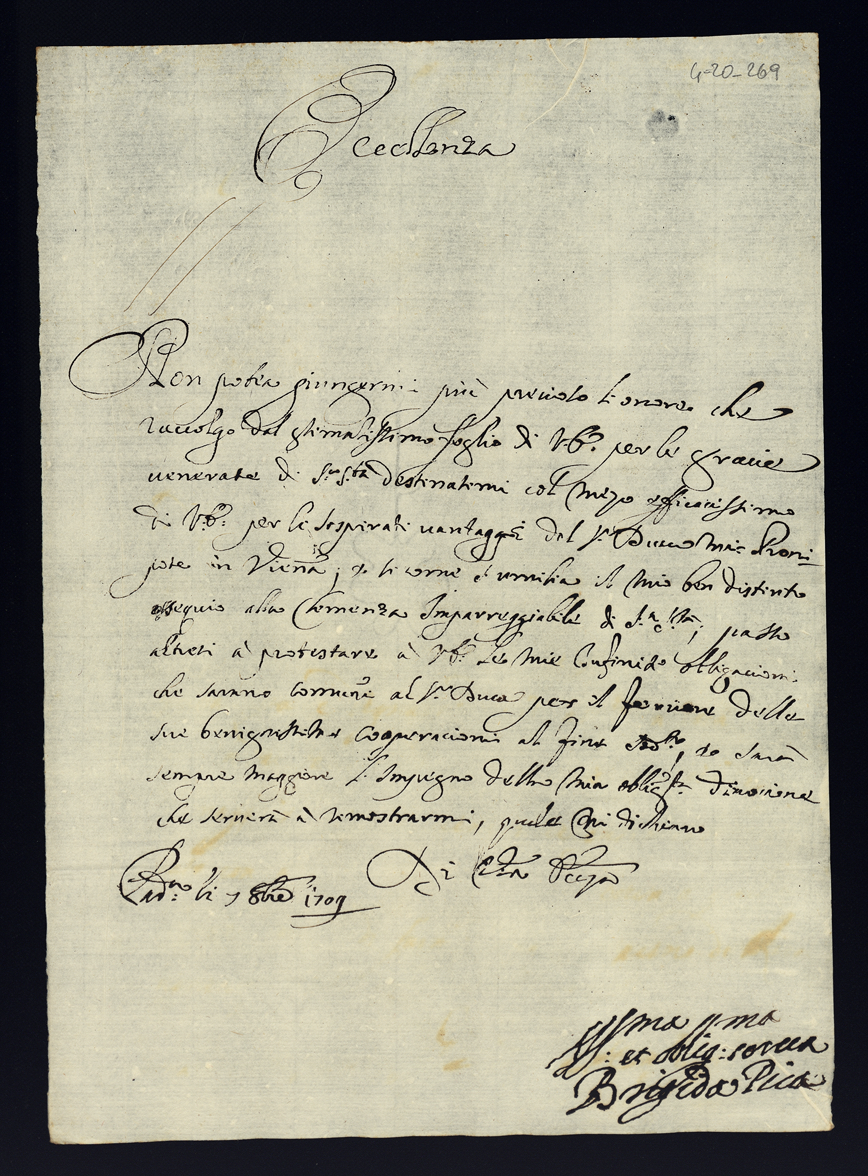 4-20-269
Eccellenza
Non potea giungermi più precioso l'onore che
raccolgo dal stimatissimo foglio di V.E. per le gracie
venerate di S. S.tà destinatemi col mezo efficacissimo
di V.E. per li sospirati vantaggi del S.r Duca mio Proni-
pote in Vienna; e si come s'umilia il mio ben distinto
ossequio alla Clemenza Impareggiabile di S. S.tà, passo
altresì à protestare à V.E. le mie infinite obligacioni
che saranno comuni al S.r Duca per il fervore delle
sue benignissime cooperacioni al fine, e sarà
sempre maggiore l'impegno della mia oblig.ma divocione
che servirà à rimostrarmi, quale mi dichiaro
Di V.ra Ecc.za
Pad.a li 7 8bre 1709
Aff.ma
S: et oblig: serva
Brigida Pica